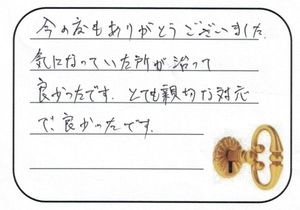 今の度もありがとうございました.
気になっていた所が治って
良かったです. とても親切な対応
で、良かったです.